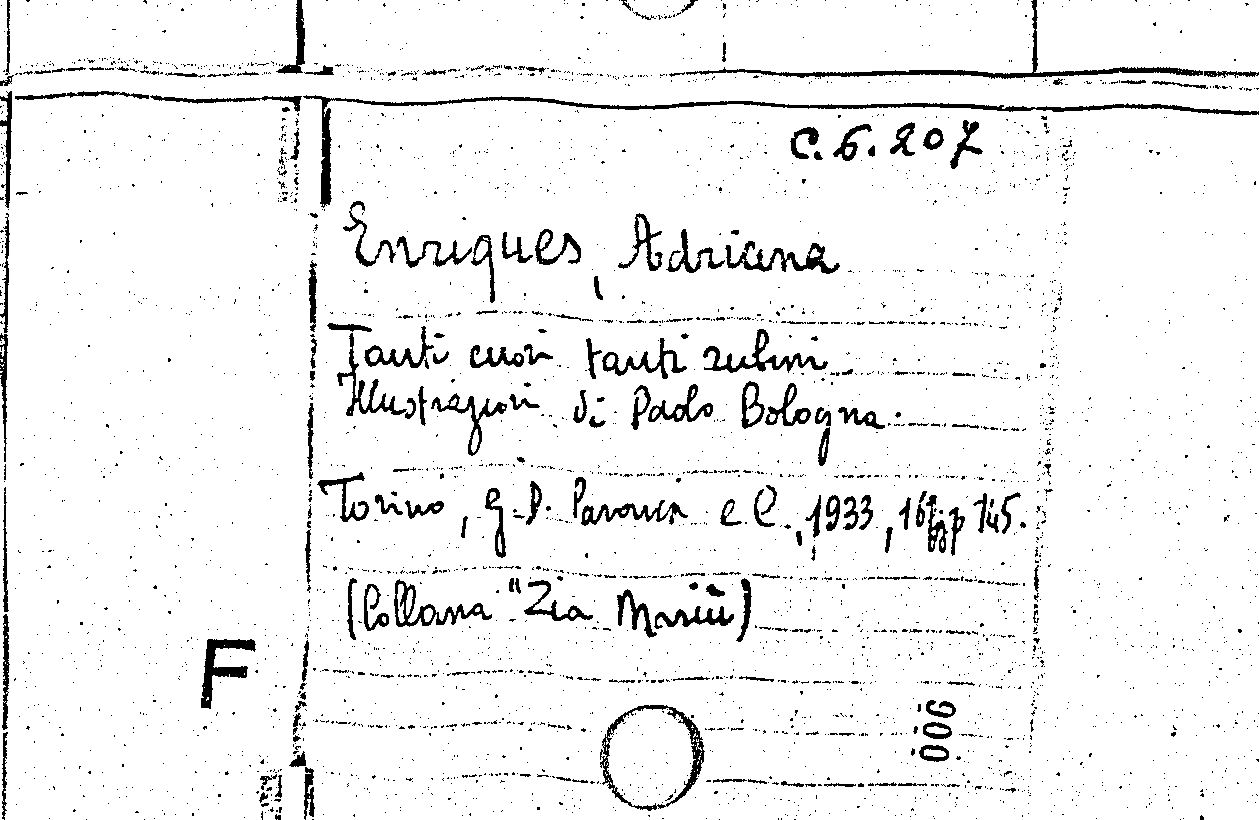 C. 6. 207
Enriques, Adriana
Tanti cuori tanti rubini
Illustrazioni di Paolo Bologna.
Torino, G. B. Paravia e C., 1933, 16° pp 145.
(Collana "Zia Mariù)
F
006